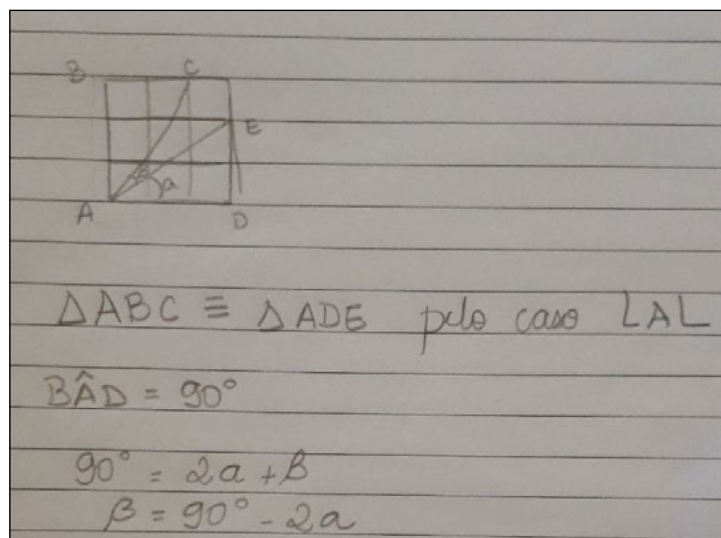 B C
E
a
A D
ΔABC ≡ ΔADE pelo caso LAL
BÂD = 90°
90° = 2a + β
β = 90° - 2a